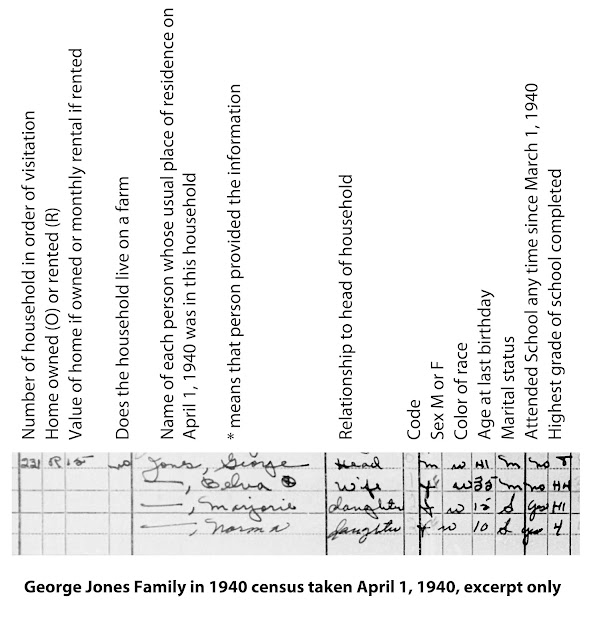 Number of household in order of visitation
Home owned (O) or rented (R)
Value of home if owned or monthly rental if rented
Does the household live on a farm
Name of each person whose usual place of residence on
April 1, 1940 was in this household
* means that person provided the information
Relationship to head of household
Code
Sex M or F
Color of race
Age at last birthday
Marital status
Attended School any time since March 1, 1940
Highest grade of school completed
231 R 15 no Jones, George Head m w 41 m no
—, Belva wife f w 35 m no H4
—, Marjorie daughter f w 15 S yes H1
—, Norma daughter f w 10 S yes 4
George Jones Family in 1940 census taken April 1, 1940, excerpt only